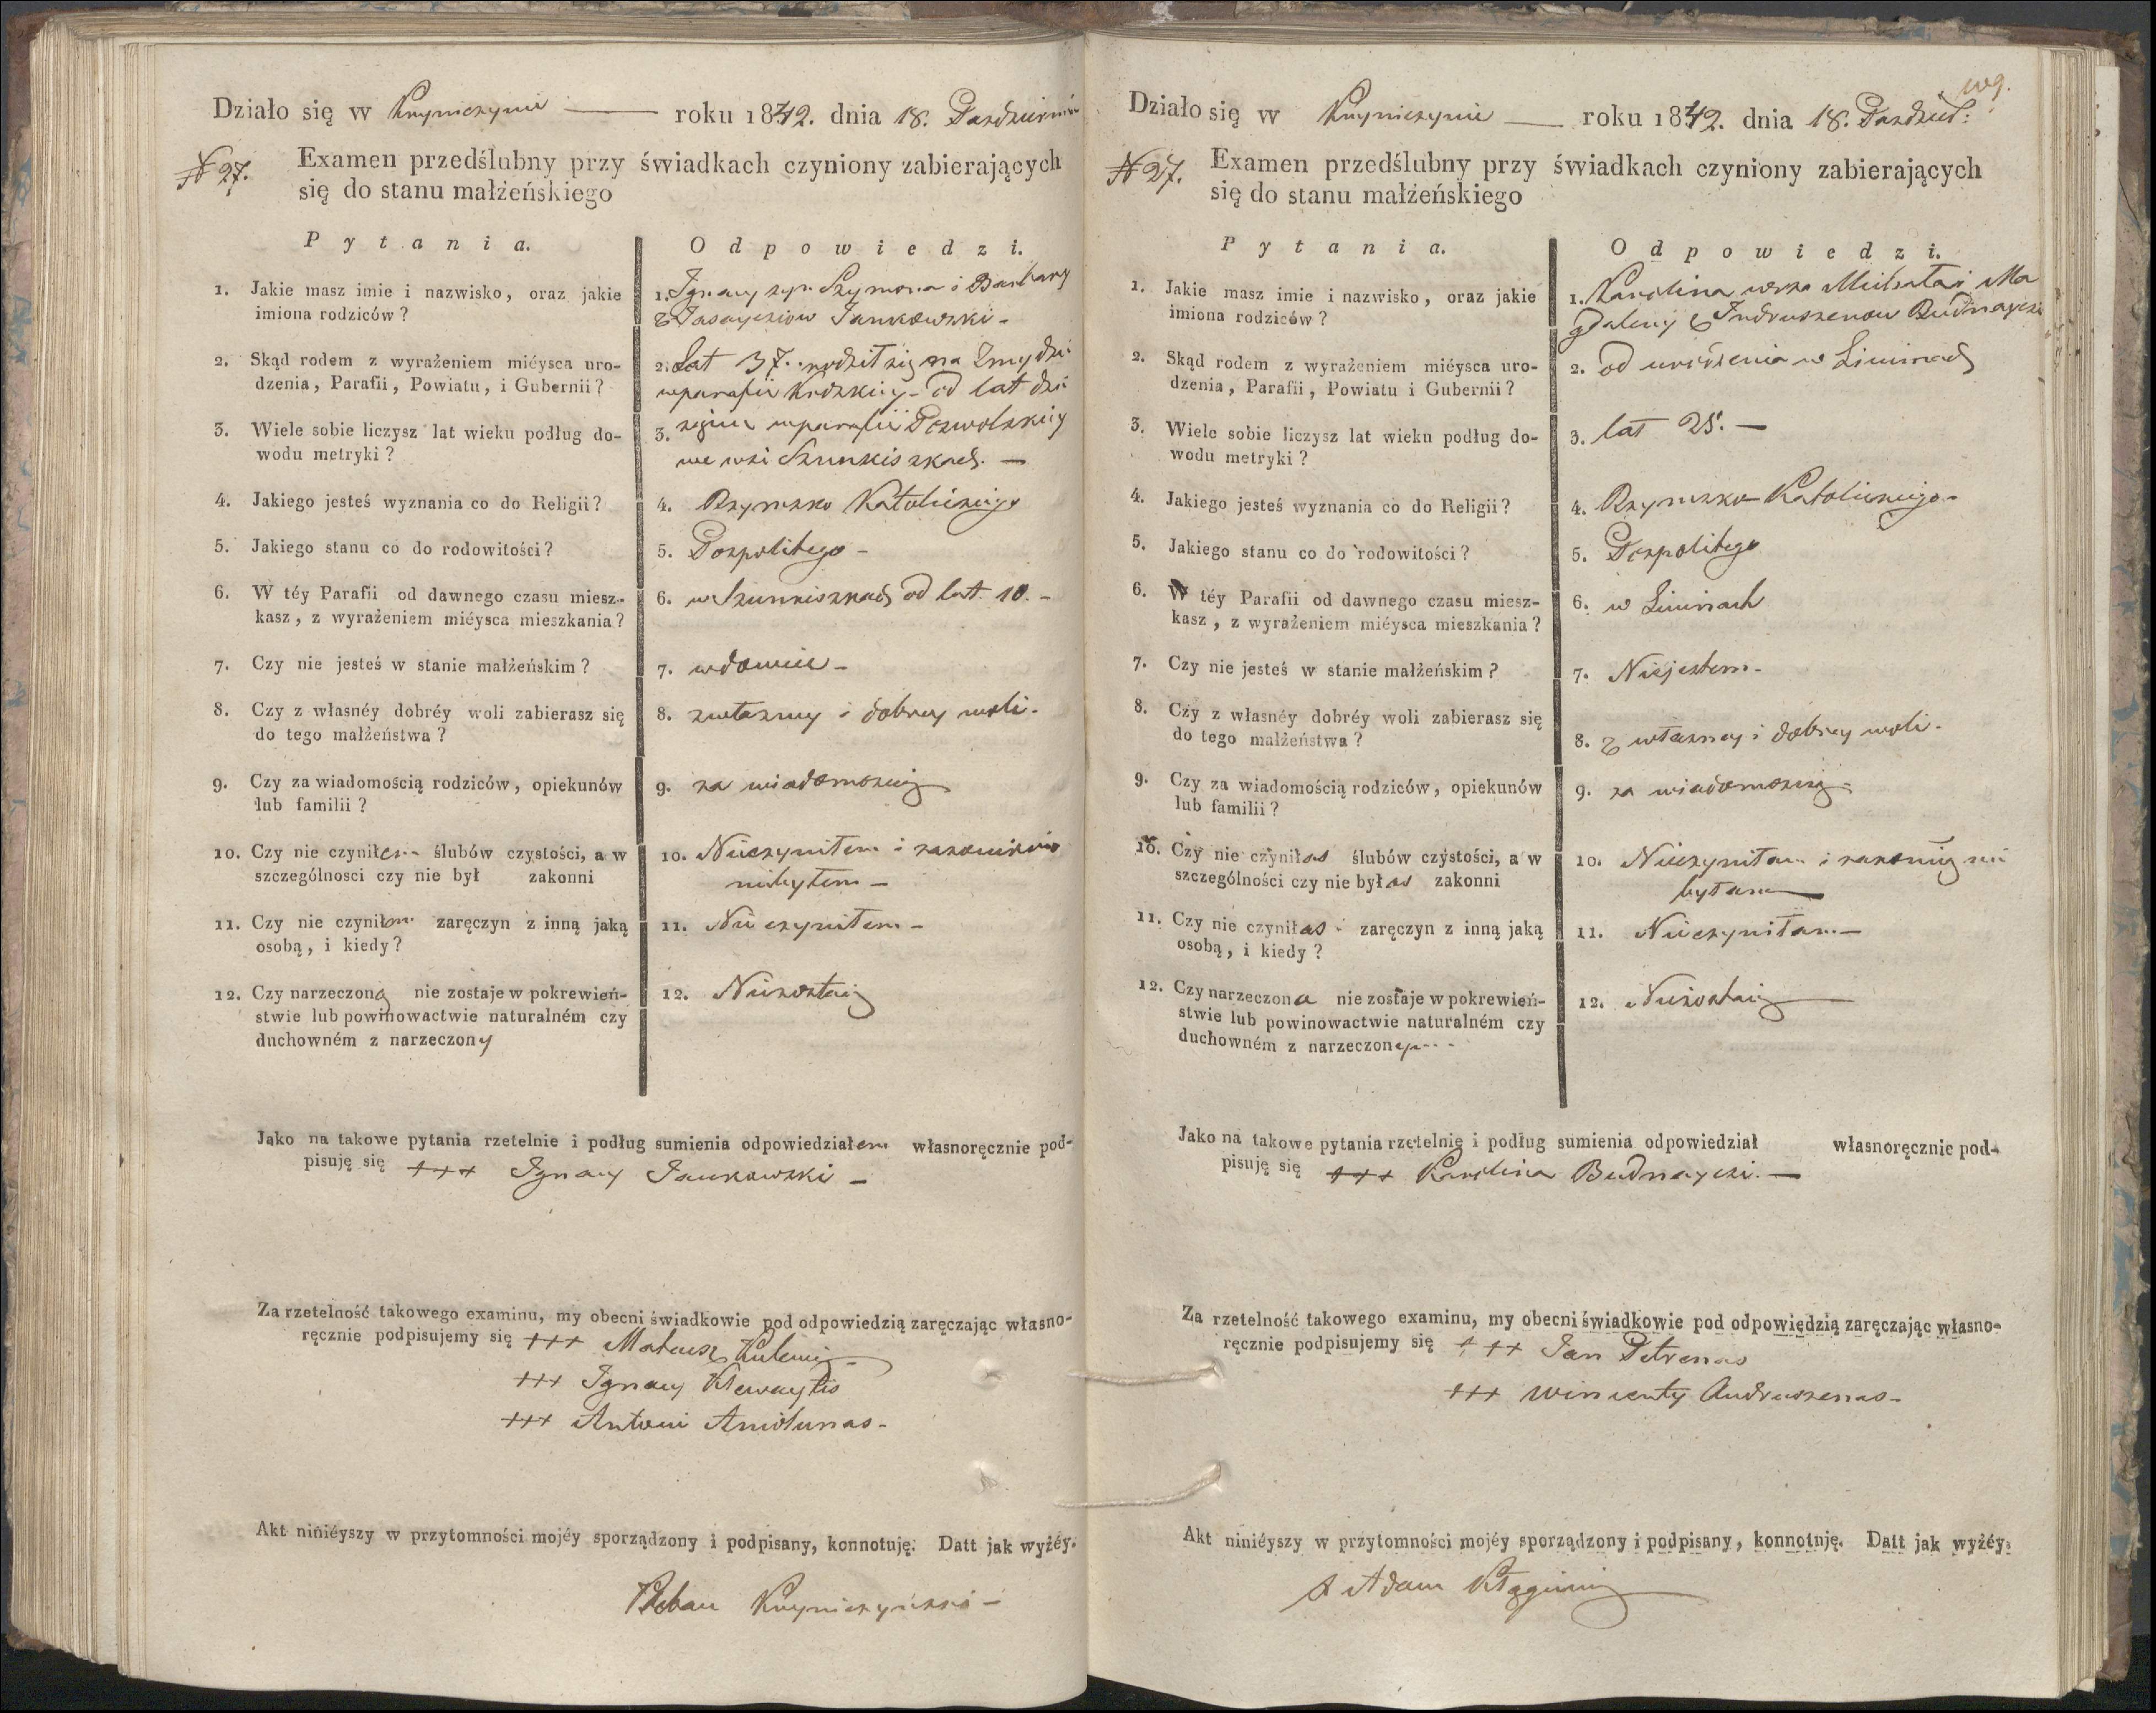 Działo się w Kryniczynie — roku 1842. dnia 18. Pazdziernika
N 27. Examen przedślubny przy świadkach czyniony zabierających
się do stanu małżeńskiego
Pytania. Odpowiedzi.
1. Jakie masz imie i nazwisko, oraz jakie 1. Ignacy syn Szymona i Barbary
imiona rodziców? z Jankowski -
2. Skąd rodem z wyrażeniem miéysca uro- 2. Lat 37. rodził się na Zmydzi
dzenia, Parafii, Powiatu, i Gubernii? w parafii od lat dzie
3. Wiele sobie liczysz lat wieku podług do- 3. w parafii Pozwolskiey
wodu metryki? we wsi Szunkiszkach. —
4. Jakiego jesteś wyznania co do Religii? 4. Rzymsko Katolickiego
5. Jakiego stanu co do rodowitości? 5. Pospolitego -
6. W téy Parafii od dawnego czasu miesz- 6. w Szunkiszkach od lat 10. -
kasz, z wyrażeniem miéysca mieszkania?
7. Czy nie jesteś w stanie małżeńskim? 7. wdowiec -
8. Czy z własnéy dobréy woli zabierasz się 8. z własney i dobrey woli.
do tego małżeństwa?
9. Czy za wiadomością rodziców, opiekunów 9. za wiadomością
lub familii?
10. Czy nie czyniłem ślubów czystości, a w 10. Nieczyniłem i
szczególnosci czy nie był zakonni niebyłem -
11. Czy nie czyniłem zaręczyn z inną jaką 11. Nie czyniłem -
osobą, i kiedy?
12. Czy narzeczona nie zostaje w pokrewień- 12. Niezostaię
stwie lub powinowactwie naturalném czy
duchowném z narzeczony
Jako na takowe pytania rzetelnie i podług sumienia odpowiedziałem własnoręcznie pod-
pisuję się +++ Ignacy Jankowski -
Za rzetelność takowego examinu, my obecni świadkowie pod odpowiedzią zaręczając własno-
ręcznie podpisujemy się +++ Mateusz
+++ Ignacy
+++ Antoni
Akt niniéyszy w przytomności mojéy sporządzony i podpisany, konnotuję. Datt jak wyżéy.
Pleban Kryniczyński -
Działo się w Kryniczynie — roku 1842. dnia 18. Pazdzier:
N 27. Examen przedślubny przy świadkach czyniony zabierających
się do stanu małżeńskiego
Pytania. Odpowiedzi.
1. Jakie masz imie i nazwisko, oraz jakie 1. Karolina Michała i Ma
imiona rodziców? gdaleny z
2. Skąd rodem z wyrażeniem miéysca uro- 2. od urodzenia w
dzenia, Parafii, Powiatu i Gubernii?
3. Wiele sobie liczysz lat wieku podług do- 3. lat 25. —
wodu metryki?
4. Jakiego jesteś wyznania co do Religii? 4. Rzymsko Katolickiego -
5. Jakiego stanu co do rodowitości? 5. Pospolitego
6. W téy Parafii od dawnego czasu miesz- 6. w
kasz, z wyrażeniem miéysca mieszkania?
7. Czy nie jesteś w stanie małżeńskim? 7. Niejestem -
8. Czy z własnéy dobréy woli zabierasz się 8. z własney i dobrey woli -
do tego małżeństwa?
9. Czy za wiadomością rodziców, opiekunów 9. za wiadomością
lub familii?
10. Czy nie czyniłas ślubów czystości, a w 10. Nieczyniłam i nie
szczególności czy nie byłas zakonni byłam
11. Czy nie czyniłas zaręczyn z inną jaką 11. Nieczyniłam —
osobą, i kiedy?
12. Czy narzeczona nie zostaje w pokrewień- 12. Niezostaię
stwie lub powinowactwie naturalném czy
duchowném z narzeczonym
Jako na takowe pytania rzetelnie i podług sumienia odpowiedział własnoręcznie pod-
pisuję się +++ Karolina Budnayczi. —
Za rzetelność takowego examinu, my obecni świadkowie pod odpowiędzią zaręczając własno-
ręcznie podpisujemy się +++ Jan Petrenas
+++ Wincenty Andruszenas -
Akt niniéyszy w przytomności mojéy sporządzony i podpisany, konnotuję. Datt jak wyżéy.
X Adam